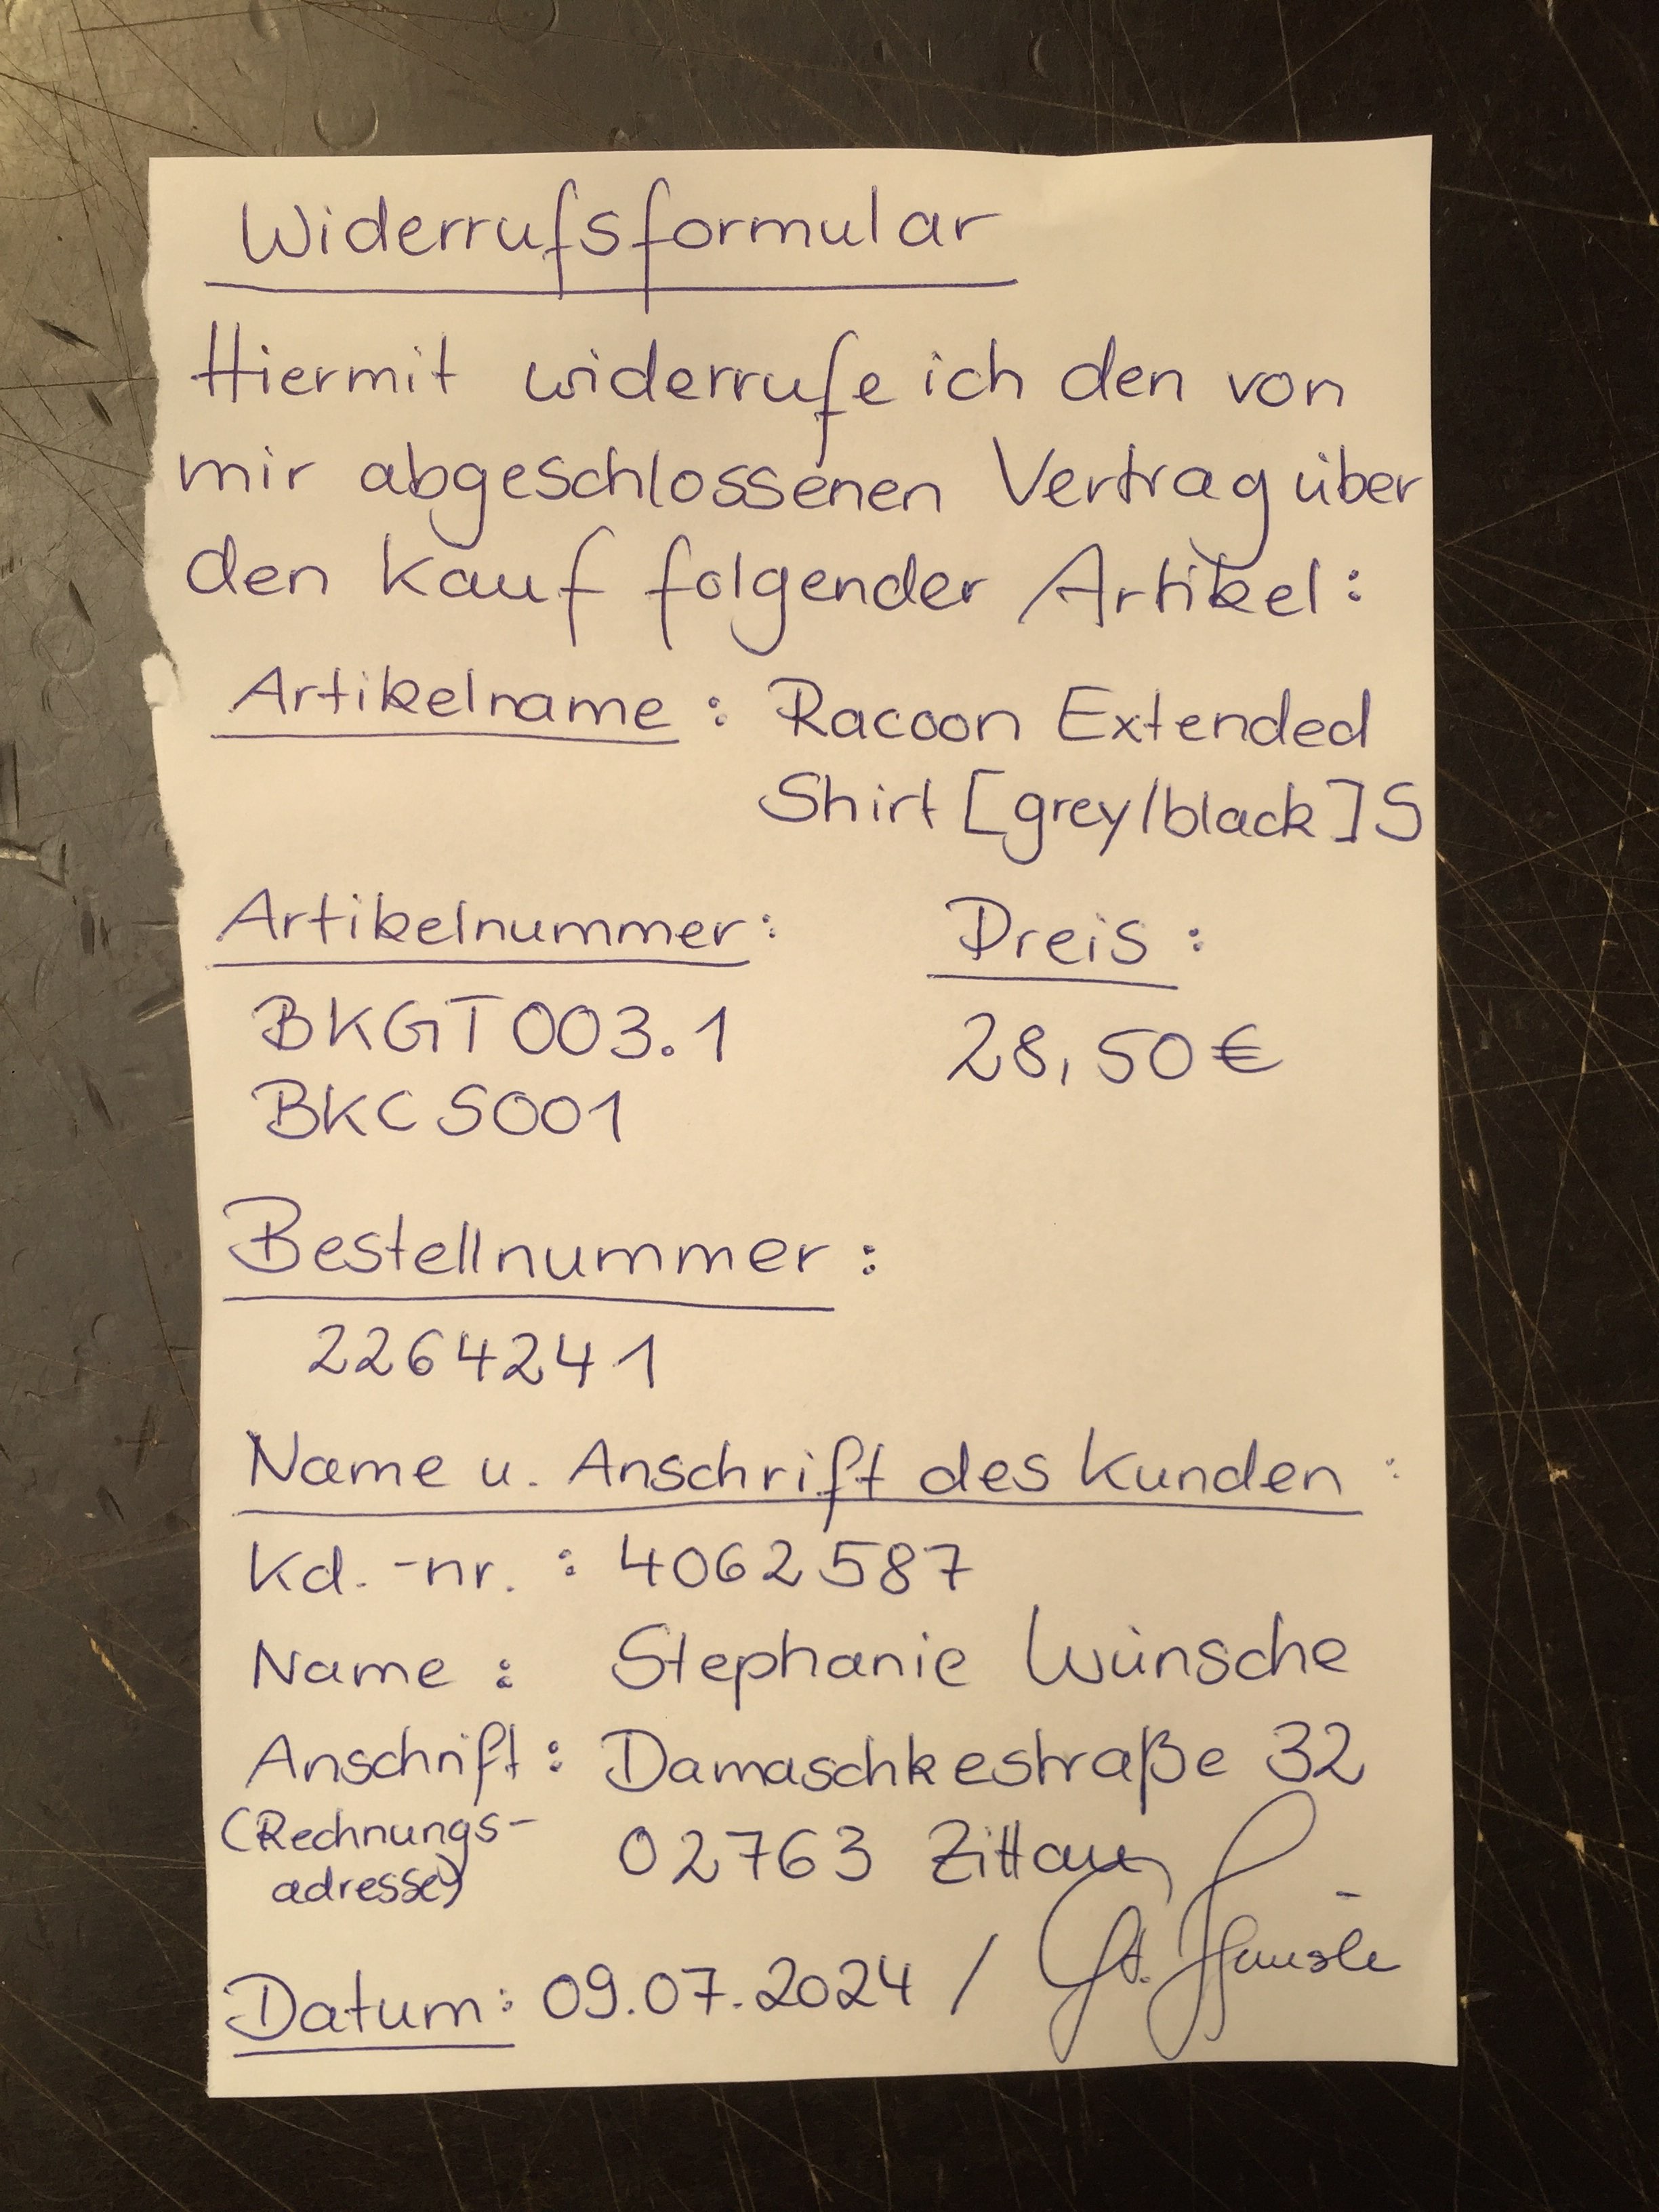 Widerrufsformular
Hiermit widerrufe ich den von
mir abgeschlossenen Vertrag über
den Kauf folgender Artikel:
Artikelname : Racoon Extended
Shirt [grey/black] S
Artikelnummer: Preis :
BKGT003.1 28,50€
BKCS001
Bestellnummer :
2264241
Name u. Anschrift des Kunden :
Kd.-nr. : 4062587
Name : Stephanie Wünsche
Anschrift : Damaschkestraße 32
(Rechnungs- 02763 Zittau
adresse)
Datum: 09.07.2024 / St.